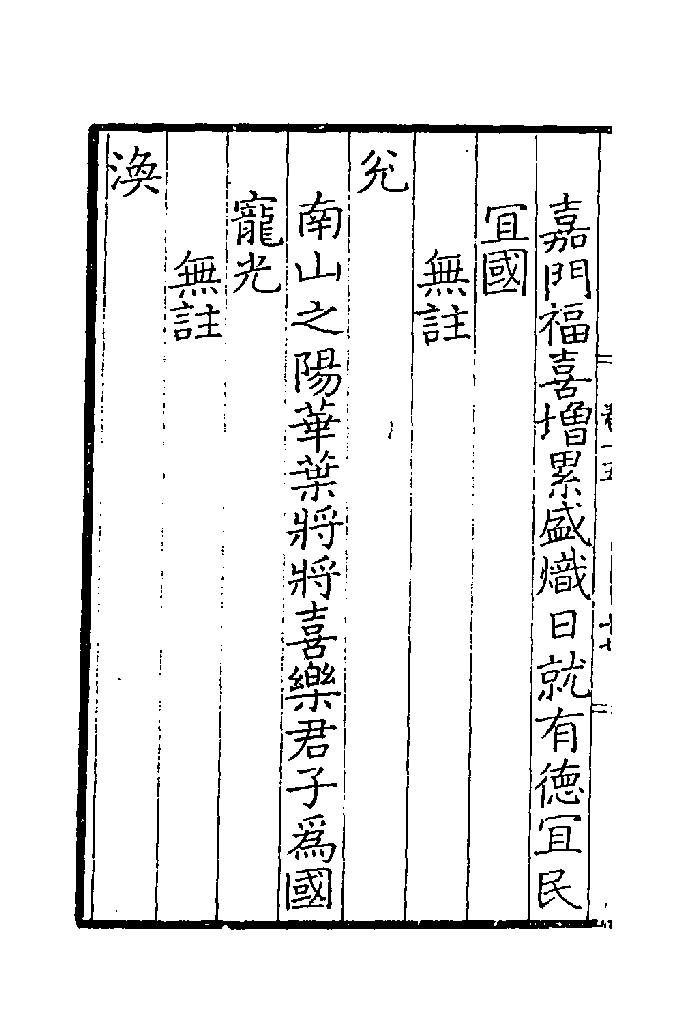 嘉門福喜增累盛熾日就有德冝民
冝國
無註
兊
南山之陽華葉將將喜樂君子爲國
寵光
無註
渙